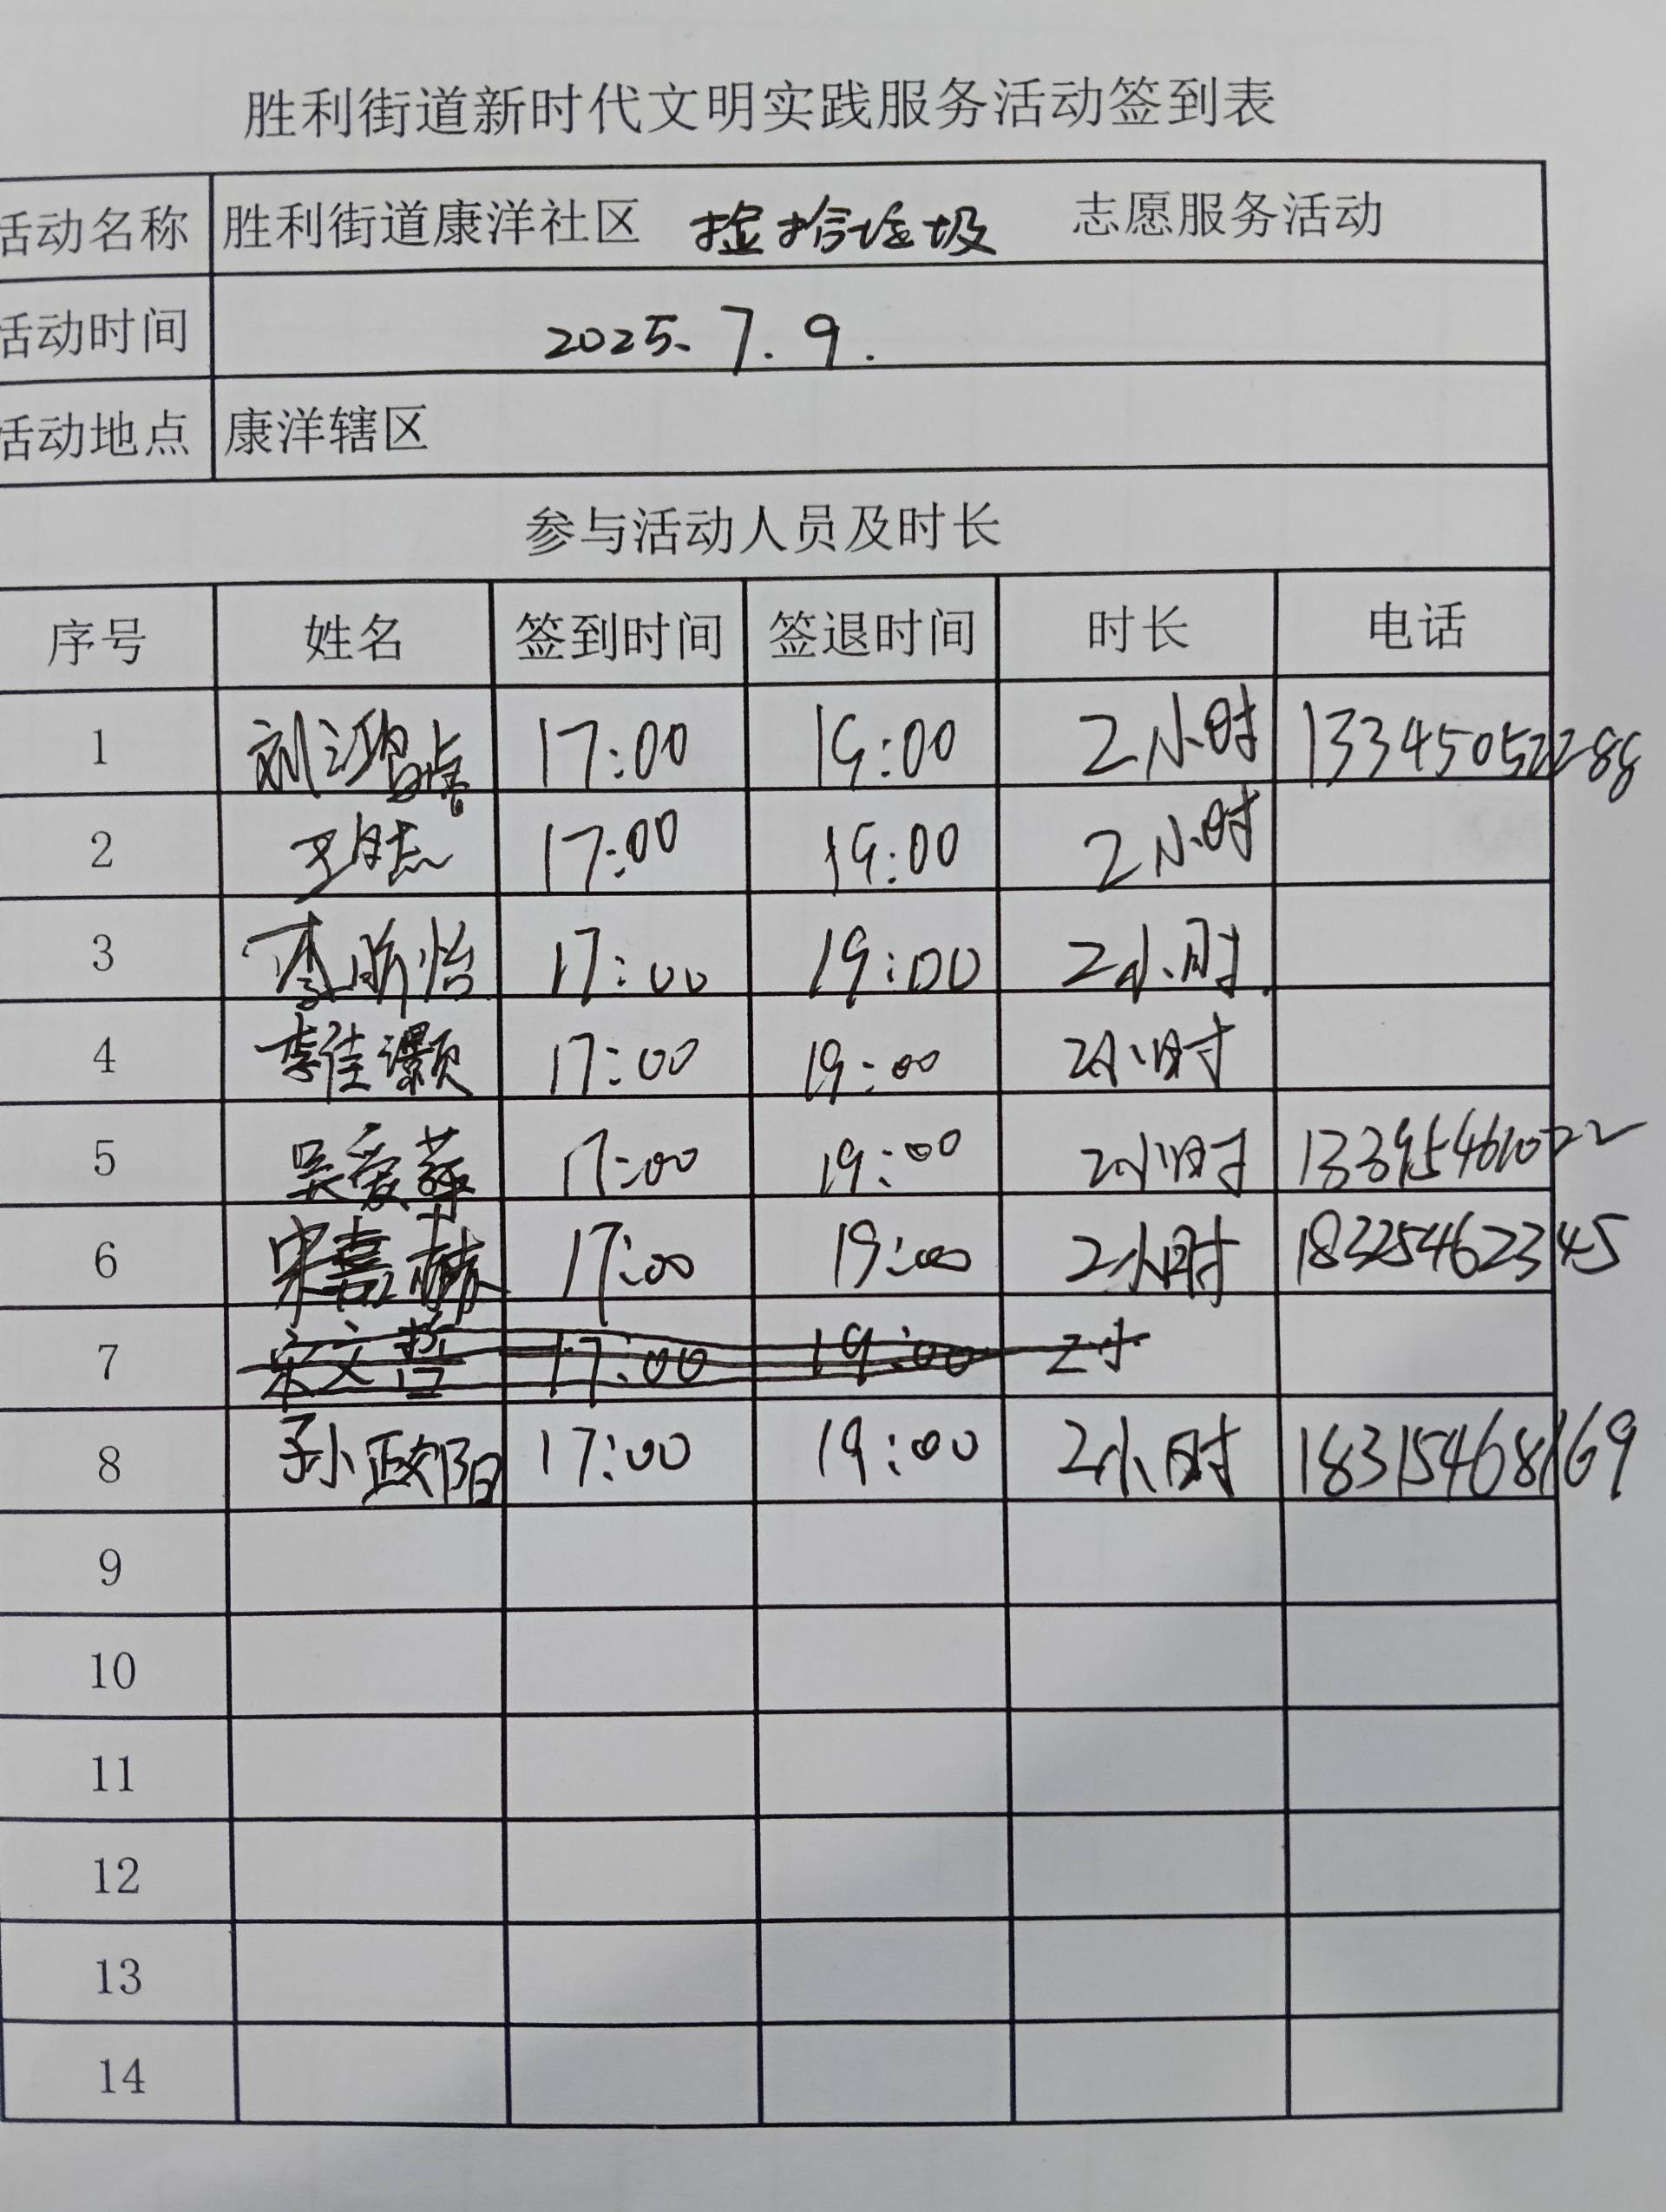 胜利街道新时代文明实践服务活动签到表
活动名称 胜利街道康洋社区 捡拾垃圾 志愿服务活动
活动时间 2025.7.9.
活动地点 康洋辖区
参与活动人员及时长
序号 姓名 签到时间 签退时间 时长 电话
1 刘鸿睿 17:00 19:00 2小时 13345052288
2 17:00 19:00 2小时
3 李昕怡 17:00 19:00 2小时
4 李佳灏 17:00 19:00 2小时
5 吴爱萍 17:00 19:00 2小时 13395461022
6 宋嘉赫 17:00 19:00 2小时 18325462345
7 宋文哲 17:00 19:00 2小
8 孙政阳 17:00 19:00 2小时 18315468169
9
10
11
12
13
14